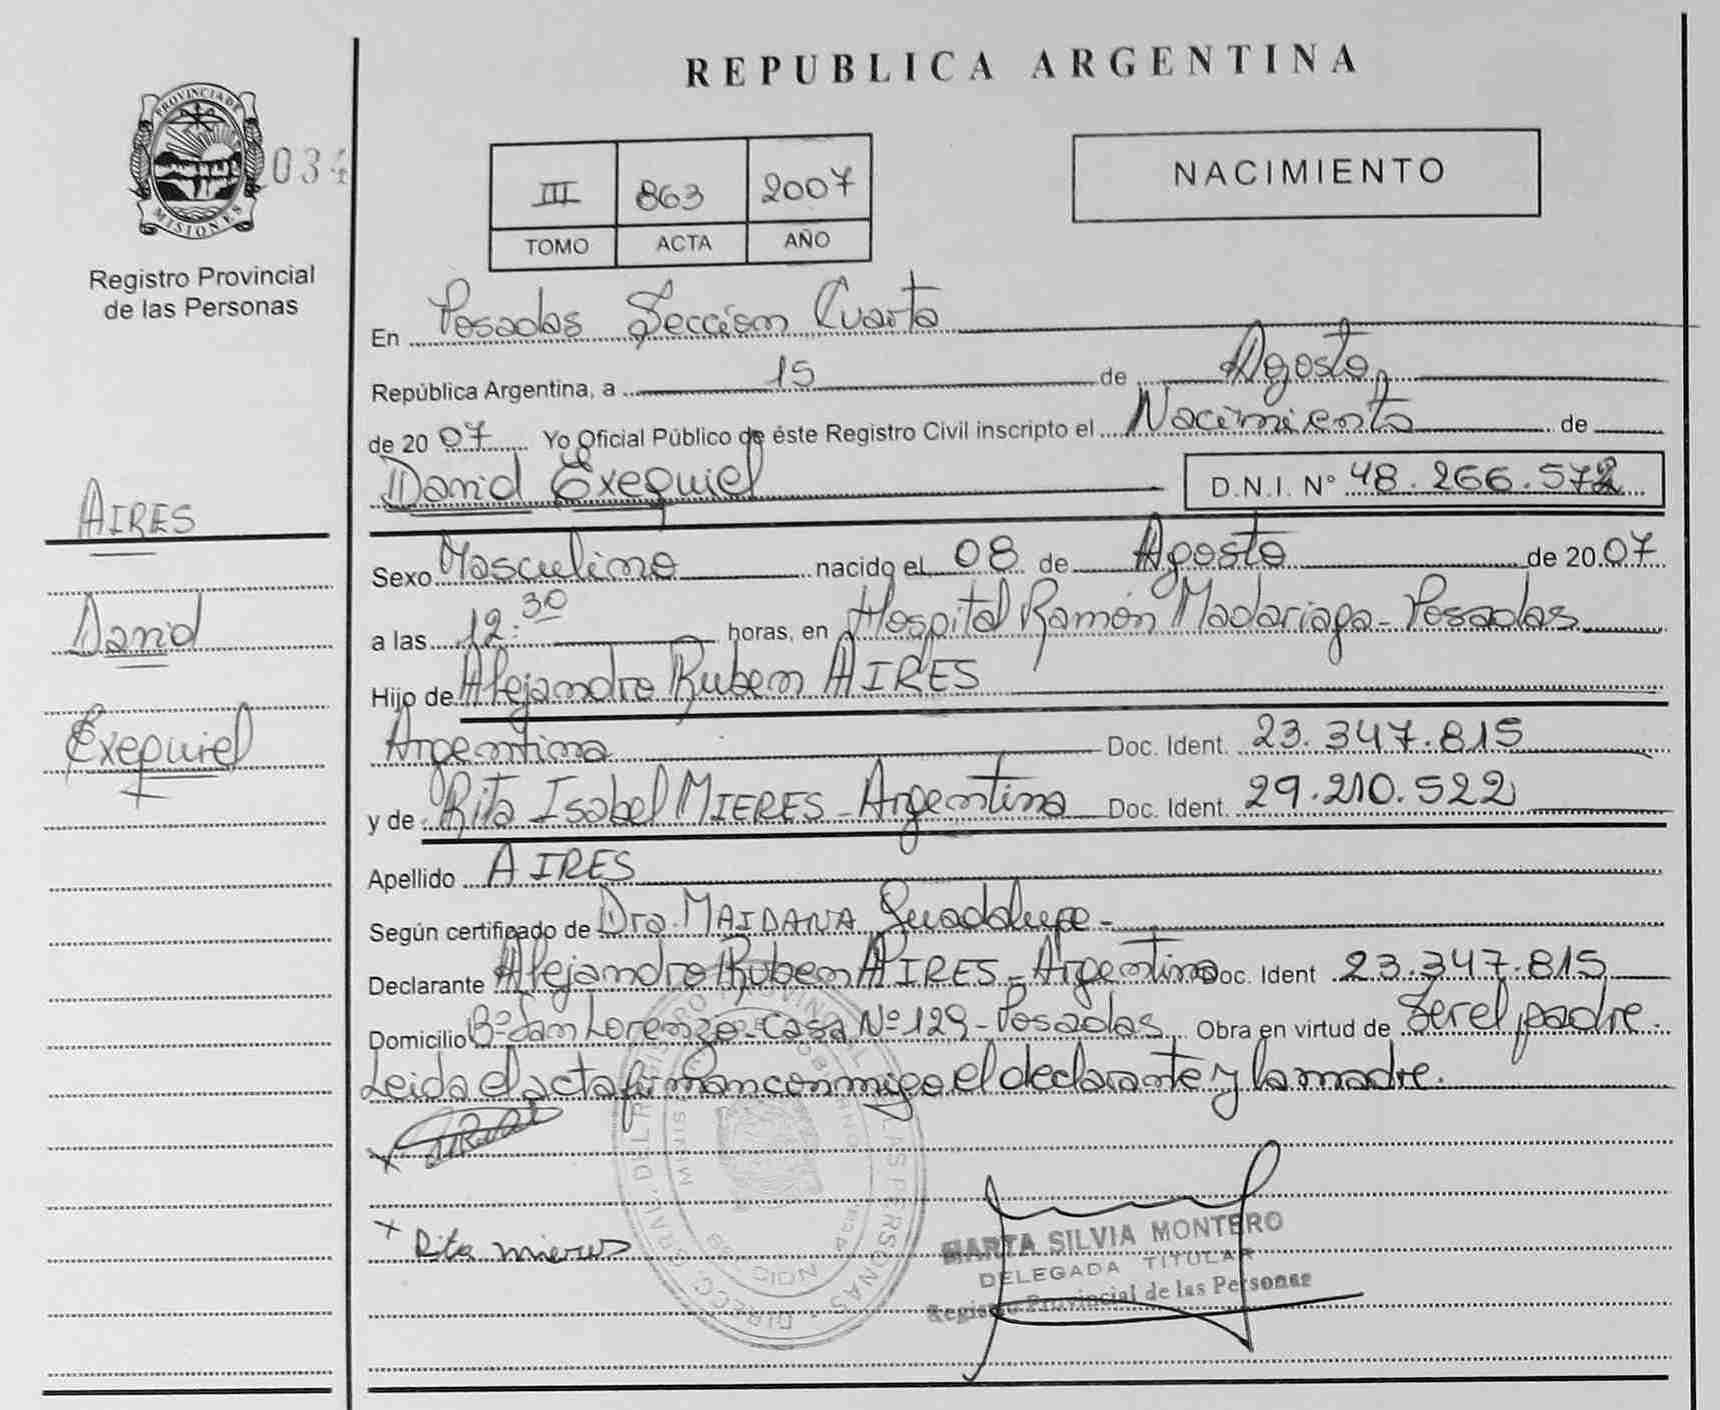 REPUBLICA ARGENTINA
PROVINCIA DE
MISIONES
034
Registro Provincial
de las Personas
III 863 2007
TOMO ACTA AÑO
NACIMIENTO
En Posadas Sección Cuarta
República Argentina, a 15 de Agosto,
de 2007 Yo Oficial Público de éste Registro Civil inscripto el Nacimiento de
David Exequiel D.N.I. N° 48.266.572
AIRES
David
Exequiel
Sexo Masculino nacido el 08 de Agosto de 2007
a las 12:30 horas, en Hospital Ramón Madariaga - Posadas
Hijo de Alejandro Ruben AIRES
Argentina Doc. Ident. 23.347.815
y de Rita Isabel MIERES - Argentina Doc. Ident. 29.210.522
Apellido AIRES
Según certificado de Dra. MAIDANA Guadalupe -
Declarante Alejandro Ruben AIRES - Argentino Doc. Ident 23.347.815
Domicilio Bº San Lorenzo - Casa Nº 129 - Posadas Obra en virtud de Ser el padre.
Leida el acta firman conmigo el declarante y la madre.
x
x Rita mieres
MARTA SILVIA MONTERO
DELEGADA TITULAR
Registro Provincial de las Personas